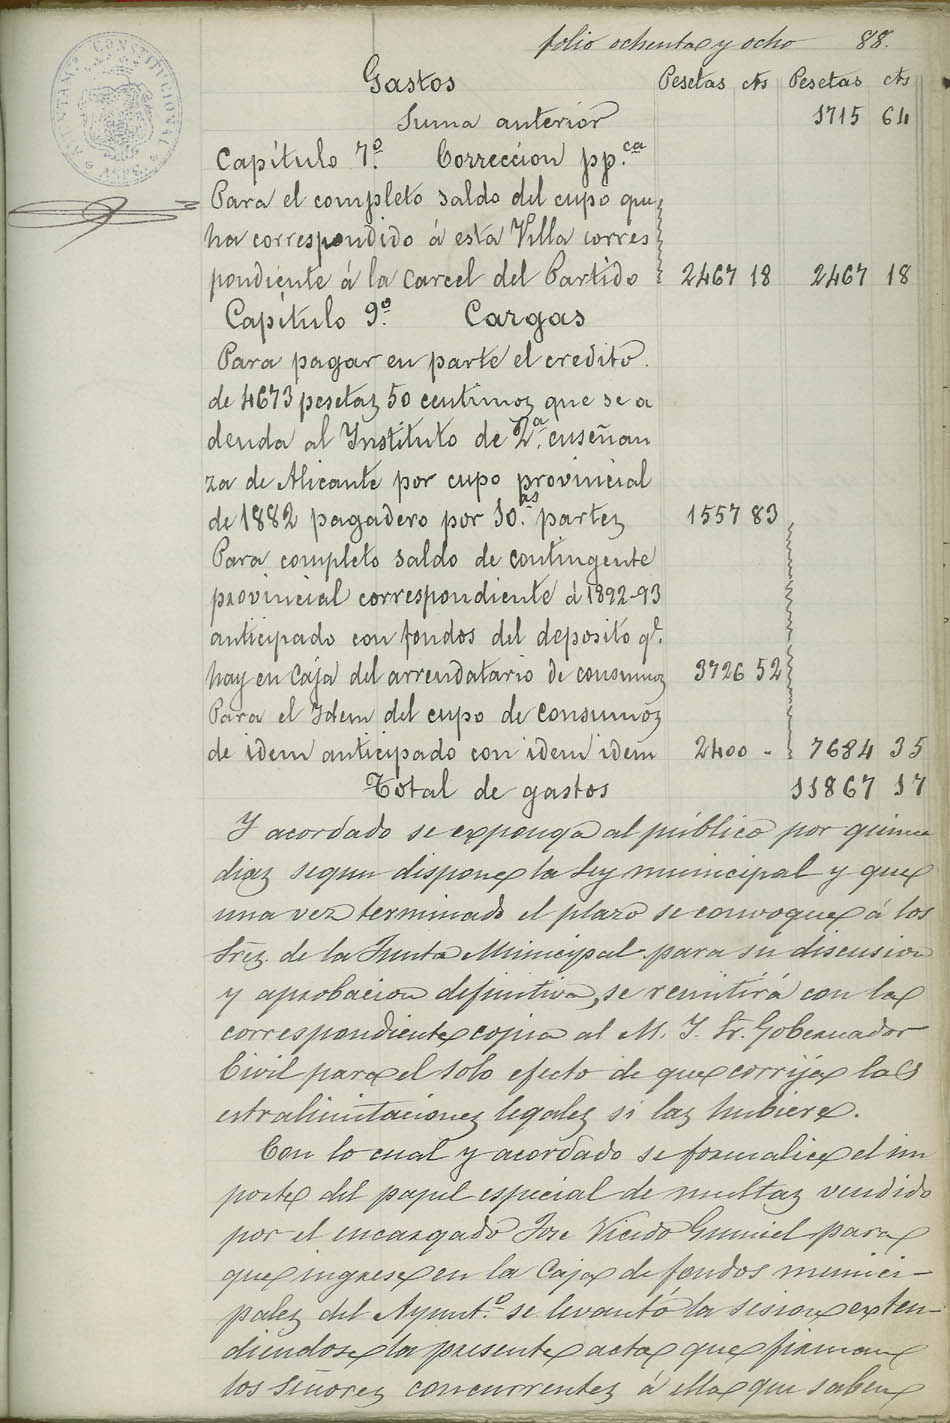 folio ochenta y ocho 88.
Gastos Pesetas cts Pesetas cts
Suma anterior 1715 64
Capítulo 7º. Correccion pp.ca
Para el completo saldo del cupo que
ha correspondido á esta Villa corres
pondiente á la carcel del Partido 2467 18 2467 18
Capítulo 9º. Cargas
Para pagar en parte el credito
de 4673 pesetas 50 centimos que se a
deuda al Instituto de 2ª. enseñan
za de Alicante por cupo provincial
de 1882 pagadero por 10.as partes 1557 83
Para completo saldo de contingente
provincial correspondiente á 1892-93
anticipado con fondos del deposito qe.
hay en Caja del arrendatario de consumos 3726 52
Para el Idem del cupo de consumos
de idem anticipado con idem idem 2400 - 7684 35
Total de gastos 11867 17
Y acordado se exponga al público por quince
dias segun dispone la ley municipal y que
una vez terminado el plazo se convoque á los
Sres. de la Junta Municipal para su discusion
y aprobacion definitiva, se remitirá con la
correspondiente copia al M. I. Sr. Gobernador
Civil para el solo efecto de que corrija las
estralimitaciones legales si las hubiere.
Con lo cual y acordado se formalice el im
porte del papel especial de multas vendido
por el encargado Jose Vicedo Gumiel para
que ingrese en la Caja de fondos munici-
pales del Ayuntº. se levantó la sesion exten-
diendose la presente acta que firman
los señores concurrentes á ella que saben